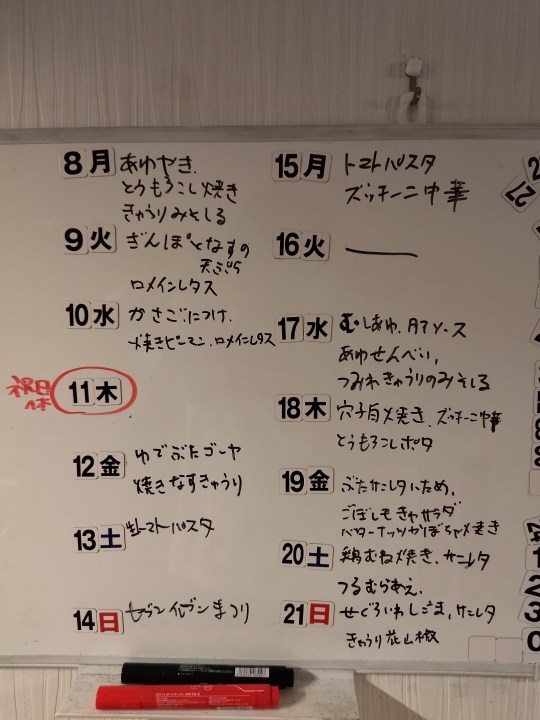 8月 あゆやき.
とうもろこし焼き
きゅうりみそしる
9火 ぎんぽとなすの
天ぷら
ロメインレタス
10水 かさごにつけ.
焼きピーマン.ロメインレタス
祝日
11木
12金 ゆでぶたゴーヤ
焼きなすきゅうり
13土 生トマトパスタ
14日 セブンイレブンまつり
15月 トマトパスタ
ズッキーニ中華
16火 ――
17水 むしあゆ.肝ソース
あゆせんべい,
つみれきゅうりのみそしる
18木 穴子白焼き.ズッキーニ中華
とうもろこしポタ
19金 ぶたサンレタいため.
ごぼしもきゃサラダ
バターナッツかぼちゃ焼き
20土 鶏むね焼き.サニレタ
つるむらあえ.
21日 せぐろいわしごま.サンレタ
きゅうり花山椒
27